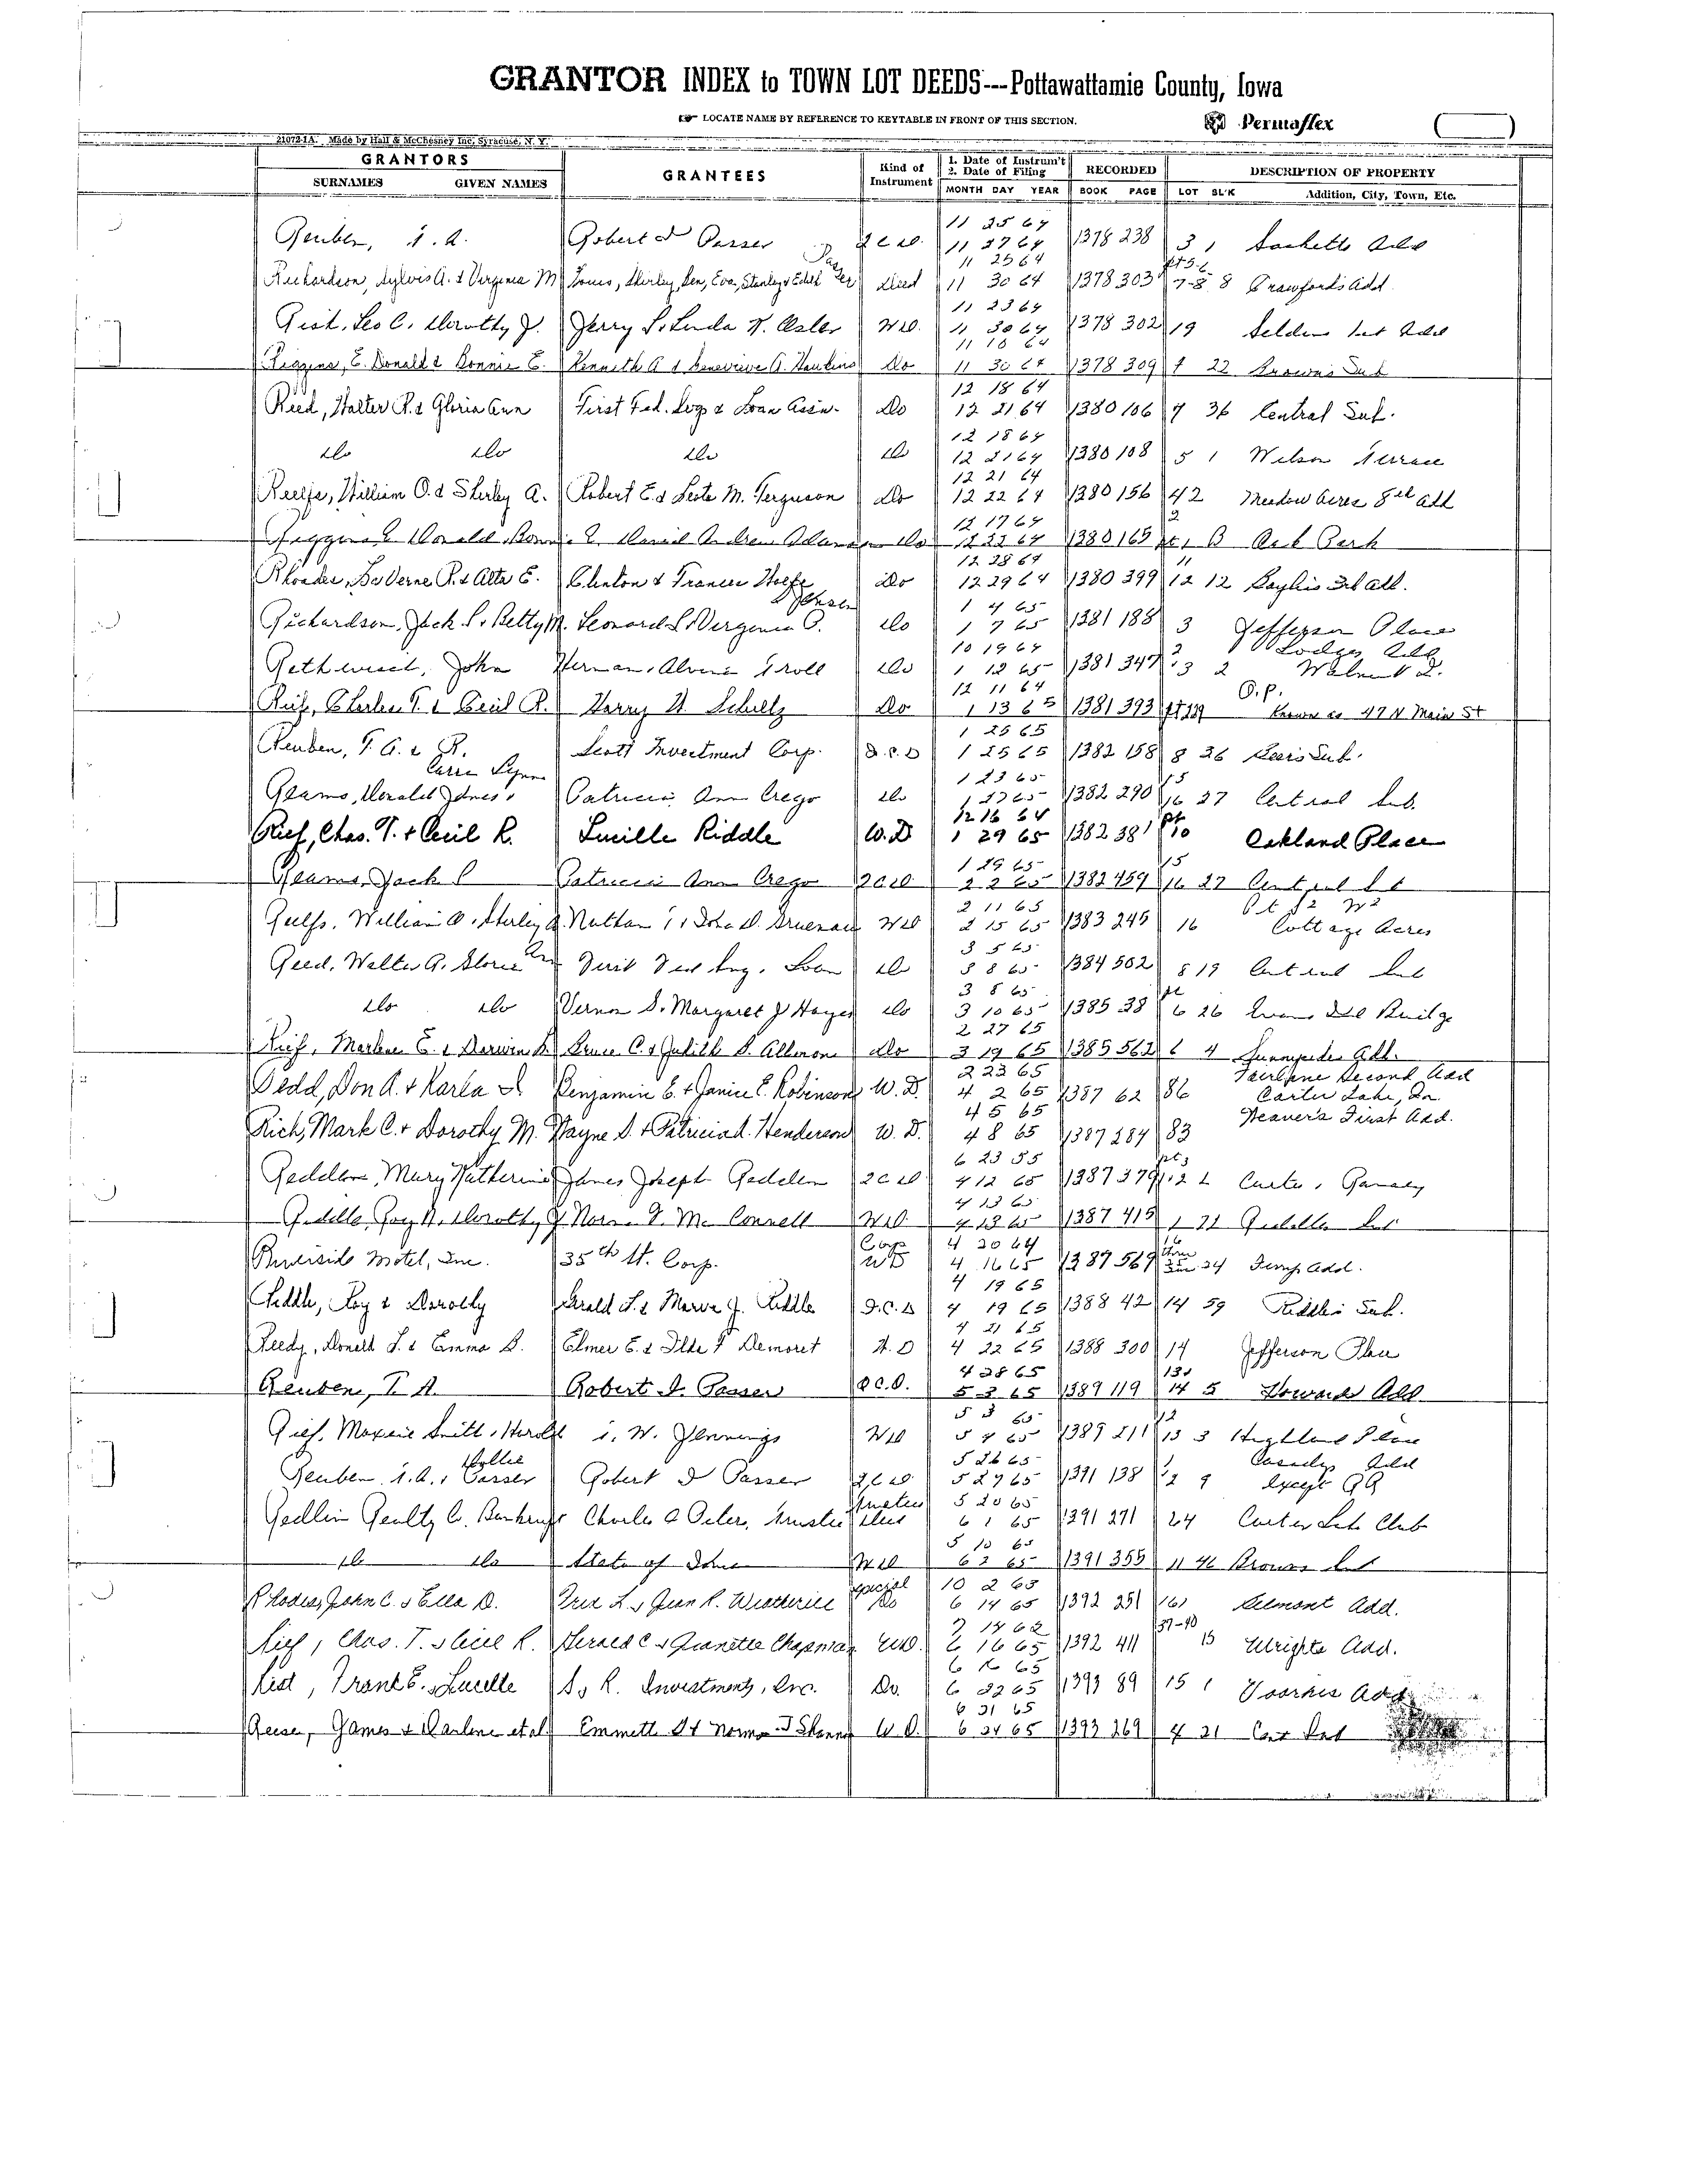 GRANTOR INDEX to TOWN LOT DEEDS---Pottawattamie County, Iowa
LOCATE NAME BY REFERENCE TO KEYTABLE IN FRONT OF THIS SECTION.
Permaflex
21072-1A Made by Hall & McChesney Inc. Syracuse, N. Y.
GRANTORS
SURNAMES GIVEN NAMES
GRANTEES
Kind of Instrument
1. Date of Instrum't
2. Date of Filing
MONTH DAY YEAR
RECORDED
BOOK PAGE
DESCRIPTION OF PROPERTY
LOT BL'K Addition, City, Town, Etc.
11 25 64
Reuben, T. A. Robert D Passer Q C D. 11 27 64 1378 238 3 1 Sacketts Add
11 25 64
Richardson, Sylvis A. & Virginia M Louis, Shirley, Ben, Eva, Stanley & Edith Passer Deed 11 30 64 1378 303 7-8 8 Crawford's Add.
11 23 64
Rist, Leo C. Dorothy J. Jerry L. Linda K. Osler W D. 11 30 64 1378 302 19 Selden 1st Add
11 18 64
Riggins, E. Donald & Bonnie E. Kenneth A & Genevieve A. Hawkins Do 11 30 64 1378 309 1 22 Browns Sub
12 18 64
Reed, Walter R. & Gloria Ann First Fed. Svgs & Loan Assn. Do 12 21 64 1380 106 7 36 Central Sub.
12 18 64
Do Do Do Do 12 21 64 1380 108 5 1 Wilson Terrace
12 21 64
Reelfs, William O. & Shirley A. Robert E. & Leota M. Ferguson Do 12 22 64 1380 156 42 Meadow Acres 8th Add
12 17 64
Riggins E Donald, Bonnie E. Daniel Andrew Do 12 22 64 1380 165 B Oak Park
12 28 64
Rhoades, LaVerne R. & Alta E. Clinton & Frances Wolfe Do 12 29 64 1380 399 12 12 Bayliss 3rd Add.
1 4 65
Richardson, Jack L. Betty M. Leonard L. Virginia O. Jensen Do 1 7 65 1381 188 3 Jefferson Place
10 19 64 Lodges Add
Rethwisch, John Herman, Alvina Troll Do 1 12 65 1381 347 3 2 Walnut
12 11 64 O.P.
Reif, Charles T. & Cecil R. Harry H. Schultz Do 1 13 65 1381 393 Known as 47 N Main St
1 25 65
Reuben, T. A. & R. Scott Investment Corp. Q.C.D 1 25 65 1382 158 8 26 Beers Sub.
Carra Lynn 1 23 65 15
Reams, Donald James, Patricia Ann Crego Do 1 27 65 1382 290 16 27 Central Sub.
12 16 64 Pt
Rief, Chas. T. & Cecil R. Lucille Riddle W.D 1 29 65 1382 381 10 Oakland Place
1 29 65 15
Reams, Jack L Patricia Ann Crego Q C D 2 2 65 1382 459 16 27 Central
2 11 65
Reelfs, William O. Shirley A. Nathan D. W D 2 15 65 1383 245 16 Cottage Acres
3 5 65
Reed, Walter R. Gloria Ann First Fed Svg. Loan Do 3 8 65 1384 502 8 19 Central Sub
3 8 65
Do Do Vernon D. Margaret J Hayes Do 3 10 65 1385 38 6 26
2 27 65
Rief, Marlene E. & Darwin Bruce C. & Judith S. Do 3 19 65 1385 562 6 4 Sunnyside Add.
2 23 65 Fairlane Second Add
Redd, Don A. & Karla Benjamin E. & Janice E. Robinson W. D. 4 2 65 1387 62 86 Carter Lake, Ia.
4 5 65 Weaver's First Add.
Rich, Mark C. & Dorothy M. Wayne D. & Patricia L. Henderson W. D. 4 8 65 1387 284 83
6 23 55
Redden, Mary Katherine James Joseph Redden Q C D 4 12 65 1387 379
4 13 65
Riddle, Roy N. Dorothy Norm. McConnell W D 4 13 65 1387 415 1 71 Riddles Sub
Corp 4 20 64
Riverside Motel, Inc. 35th St. Corp. WD 4 16 65 1387 569 24 Add.
4 19 65
Riddle, Roy & Dorothy Gerald L. & Marva J. Riddle Q.C.D 4 19 65 1388 42 14 59 Riddles Sub.
4 21 65
Reedy, Donald L. & Emma Elmer E. & Ilda Demoret W. D 4 22 65 1388 300 14 Jefferson Place
4 28 65
Reuben, T. A. Robert D. Passer Q C.D. 5 3 65 1389 119 14 5 Howards Add
5 3 65 12
Rief, Maxine Smith, Harold W. Jennings W D 5 4 65 1389 211 13 3 Highland Place
Mollie 5 26 65 Casadys Add
Reuben T. A. Passer Robert D Passer Q C D 5 27 65 1391 138 2 9 Except RR
Trustees 5 20 65
Redlin Realty Co. Bankrupt Charles Trustee Deed 6 1 65 1391 271 24 Carter Lake Club
5 10 65
Do Do State of Iowa W D 6 2 65 1391 355 11 46 Browns Sub
Special 10 2 65
Rhodes, John C. & Ella D. L. & Jean R. Do 6 14 65 1392 251 161 Belmont Add.
7 14 62 37-40
Rief, Chas. T. & Cecil R. Gerald C & Jeanette Chapman W.D. 6 16 65 1392 411 15 Wrights Add.
6 65
Rist, Frank E. & Lucille S. & R. Investments, Inc. Do. 6 22 65 1393 89 15 1 Voorhis Add
6 21 65
Reese, James & Darlene et al Emmett & Norma J W.D. 6 24 65 1393 269 4 21